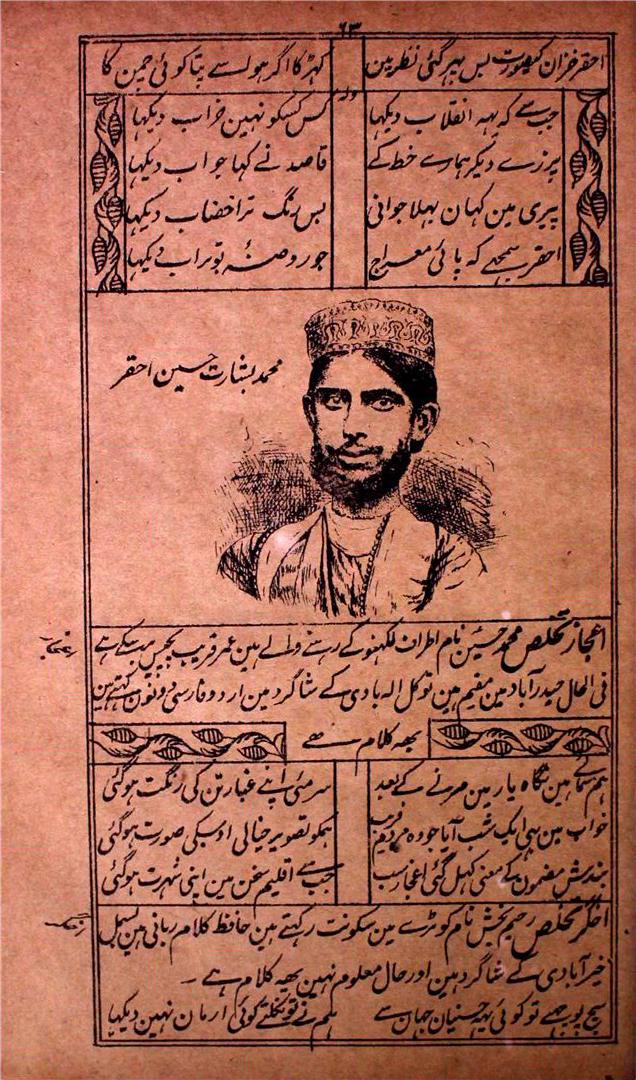 ۶۳
احقر خزان کیصورت بس پہر گئی نظر مین کہڑکا اگر ہو لسے پتا کوئی چمن کا
ولہ
جب سے کہ یہہ انقلاب دیکہا کس کسکو نہین خراب دیکہا
پرزے دیکر ہمارے خط کے قاصد نے کہا جواب دیکہا
پیری مین کہان بہلا جوانی بس رنگ ترا خضاب دیکہا
احقر یہ سمجہے کہ پائی معراج جو روضۂ بوتراب دیکہا
محمد بشارت حسین احقر
اعجاز تخلص محمد حسین نام اطراف لکہنو کے رہنے والے ہین عمر قریب پچیس برسکے ہے
فی الحال حیدرآباد مین مقیم ہین توکل الہ بادی کے شاگرد مین اردو فارسی دونون کہتے ہین
یہہ کلام ہے
ہم سمائے ہین نگاہ یار مین مرنے کے بعد سرمئی اپنے غبار تن کی رنگت ہوگئی
خواب مین بہی ایک شب آیا جو وہ مردم فریب ہمکو تصویر خیالی اوسکی صورت ہوگئی
بندش مضمون کے معنی کہل گئی اعجاز سب جب سے اقلیم سخن مین اپنی شہرت ہوگئی
اخگر تخلص رحیم بخش نام کوڑے مین سکونت رکہتے ہین حافظ کلام ربانی ہین بسمل
خیرآبادی کے شاگرد ہین اور حال معلوم نہین یہہ کلام ہے ۔
سچ پوچہے تو کوئی یہہ حسینان جہان سے ہم نے تو نکلتے کوئی ارمان نہین دیکہا